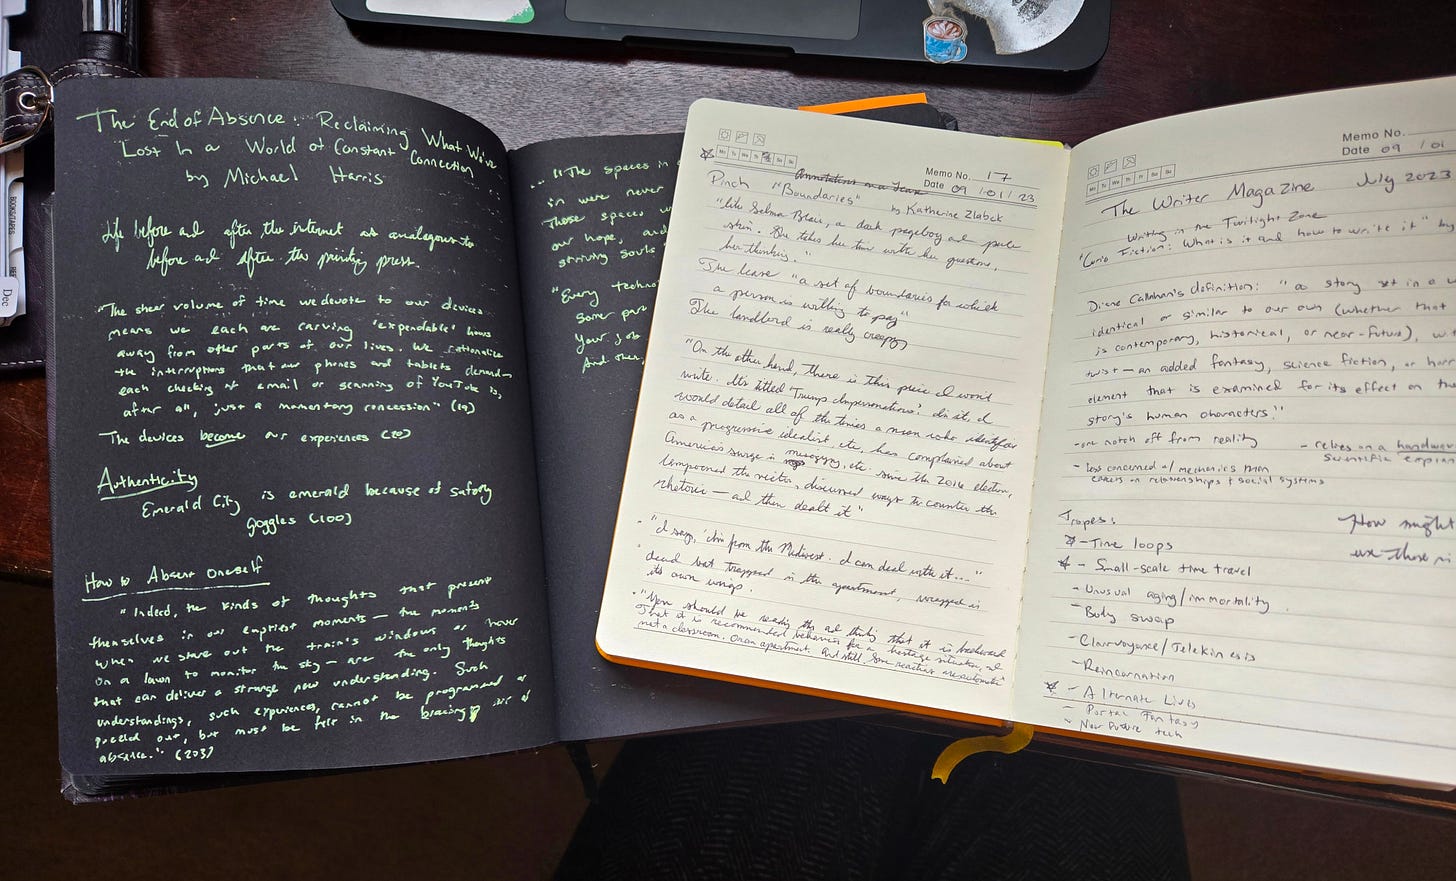 The End of Absence: Reclaiming What We've
Lost In a World of Constant Connection
by Michael Harris
Life before and after the internet as analogous to
before and after the printing press.
"The sheer volume of time we devote to our devices
means we each are carving 'expendable' hours
away from other parts of our lives. We rationalize
the interruptions that our phones and tablets demand—
each checking of email or scanning of YouTube is,
after all, 'just a momentary concession" (19)
The devices become our experiences (20)
Authenticity
Emerald City is emerald because of safety
goggles (100)
How to Absent Oneself
"Indeed, the kinds of thoughts that present
themselves in our emptiest moments — the moments
when we stare out the train's windows or hover
on a lawn to monitor the sky — are the only thoughts
that can deliver a strange new understanding. Such
understandings, such experiences, cannot be programmed or
out, but must be felt in the bracing air of
absence." (203)
... "The spaces in
in were never
Those spaces
our hope, and
striving souls
"Every techno
Same
your job
And then,
BOOKS/TAPES
Dec
Mo Tu We Th Fr Sa Su
Memo No. 17
Date 09 /01/ 23
Pinch "Boundaries" by Katherine Zlabek
"like Selma Blair, a dark pageboy and pale
skin. She takes her time with her questions,
her thinking."
The lease "a set of boundaries for which
a person is willing to pay"
The landlord is really creepy
"On the other hand, there is this piece I won't
write. It's titled 'Trump Impersonations'; in it, I
would detail all of the times a man who identifies
as a progressive idealist, etc, has complained about
America's surge in misogyny, etc. since the 2016 election,
lampooned the rhetoric, discussed ways to counter the
rhetoric — and then dealt it"
"I say, 'I'm from the Midwest. I can deal with it..."
dead bat trapped in the apartment, wrapped in
its own wings.
"You should be reading this and thinking that it is backward
that it is recommended behavior for a hostage situation, and
not a classroom. Or an apartment. And still, some reactions are automatic"
Mo Tu We Th Fr Sa Su
Memo No.
Date 09 / 01
The Writer Magazine July 2023
Writing in the Twilight Zone
"Curio Fiction: What is it and how to write it" by
Diane Callahan's definition: "a story set in a
identical or similar to our own (whether that
is contemporary, historical, or near-future), wit
twist — an added fantasy, science fiction, or horr
element that is examined for its effect on the
story's human characters."
-one notch off from reality
- relies on a handwav
scientific explan
- less concerned w/ mechanics than
effects on relationships + social systems
Tropes:
How might
use these in
- Time loops
- Small-scale time travel
- Unusual aging/immortality
- Body swap
- Clairvoyance/Telekinesis
- Reincarnation
- Alternate Lives
- Portal Fantasy
- Near Future tech